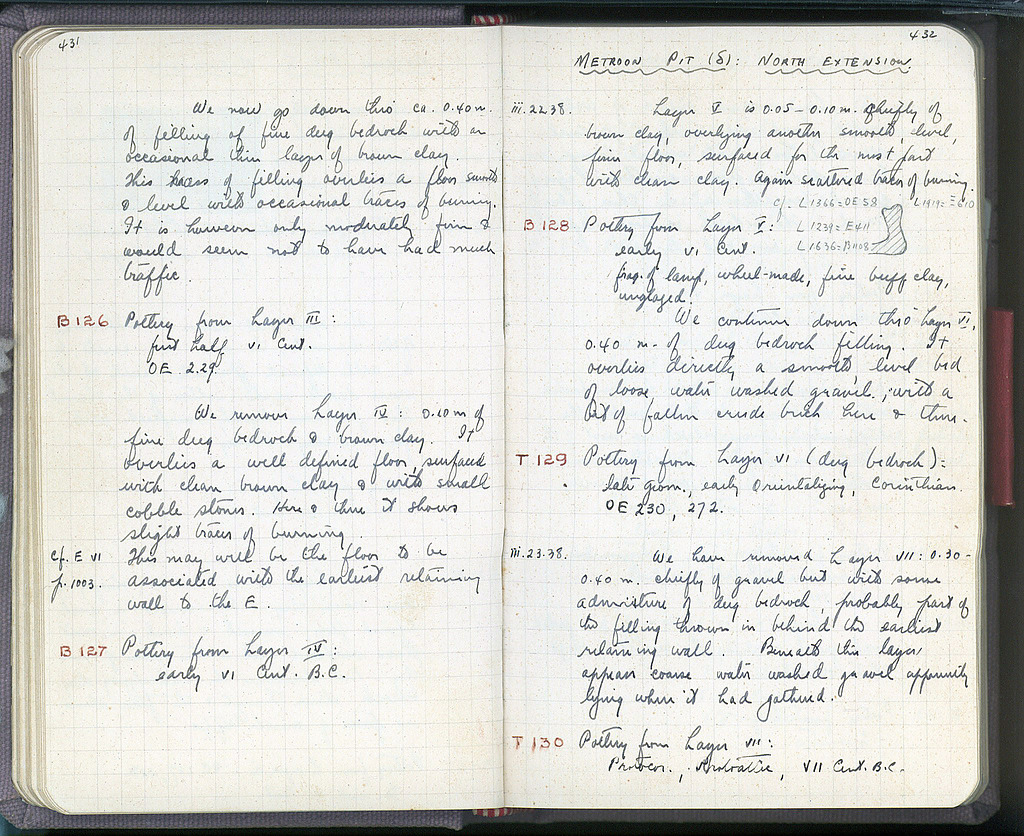 431
We now go down this ca. 0.40 m.
of filling of fine dug bedrock with an
occasional thin layer of brown clay.
This mass of filling overlies a floor smooth
& level with occasional traces of burning.
It is however only moderately firm &
would seem not to have had much
traffic.
B 126 Pottery from Layer III:
first half VI Cent.
OE 229
We remove Layer IV: 0.10 m of
fine dug bedrock & brown clay. It
overlies a well defined floor, surfaced
with clean brown clay & with small
cobble stones. Here & there it shows
slight traces of burning.
cf. E VI This may well be the floor to be
p. 1003. associated with the earliest retaining
wall to the E.
B 127 Pottery from Layer IV:
early VI Cent. B.C.
432
METROON PIT (δ): NORTH EXTENSION
iii.22.38. Layer V is 0.05-0.10 m. chiefly of
brown clay, overlying another smooth, level,
firm floor, surfaced for the most part
with clean clay. Again scattered traces of burning.
cf. L 1366=OE 58 L 1919=Ξ 610
B 128 Pottery from Layer V: L 1239=E 411
early VI Cent. L 1636=B 1108
frag. of lamp, wheel-made, fine buff clay,
unglazed.
We continue down thro' Layer VI,
0.40 m. of dug bedrock filling. It
overlies directly a smooth, level bed
of loose, water washed gravel, with a
bit of fallen crude brick here & there.
T 129 Pottery from Layer VI (dug bedrock):
late geom., early Orientalizing, Corinthian.
OE 230, 272.
iii.23.38. We have removed Layer VII: 0.30-
0.40 m. chiefly of gravel but with some
admixture of dug bedrock, probably part of
the filling thrown in behind the earliest
retaining wall. Beneath this layer
appears coarse water washed gravel apparently
lying where it had gathered.
T 130 Pottery from Layer VII:
Protocor., Protoattic, VII Cent. B.C.